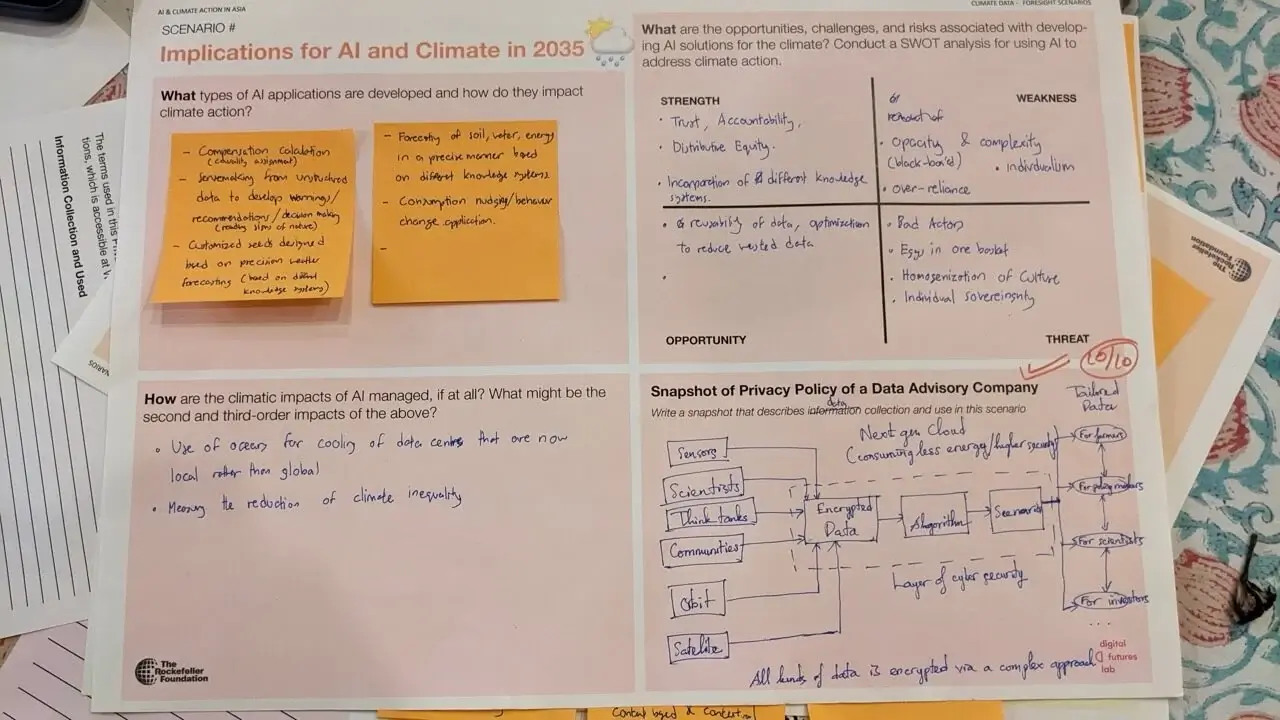 AI & CLIMATE ACTION IN ASIA
CLIMATE DATA - FORESIGHT SCENARIOS
SCENARIO #
Implications for AI and Climate in 2035
What types of AI applications are developed and how do they impact
climate action?
- Compensation calculation
(causality assignment)
- Sensemaking from unstructured
data to develop warnings/
recommendations/decision making
(reading signs of nature)
- Customized seeds designed
based on precision weather
forecasting (based on different
knowledge systems)
- Forecasting of soil, water, energy
in a precise manner based
on different knowledge systems
- Consumption nudging/behavior
change application.
-
What are the opportunities, challenges, and risks associated with develop-
ing AI solutions for the climate? Conduct a SWOT analysis for using AI to
address climate action.
STRENGTH
• Trust, Accountability,
• Distributive Equity.
• Incorporation of different knowledge
systems.
WEAKNESS
• Opacity & complexity
(black-boxed)
• individualism
• over-reliance
• reusability of data, optimization
to reduce wasted data
•
OPPORTUNITY
• Bad Actors
• Eggs in one basket
• Homogenization of Culture
• Individual sovereignty
THREAT
How are the climatic impacts of AI managed, if at all? What might be the
second and third-order impacts of the above?
• Use of oceans for cooling of data centres that are now
local rather than global
• Measuring the reduction of climate inequality
10/10
Snapshot of Privacy Policy of a Data Advisory Company
data
Write a snapshot that describes information collection and use in this scenario
Tailored
Data
Next gen Cloud
(consuming less energy/higher security)
Sensors
Scientists
Think tanks
Communities
Orbit
Satelite
Encrypted
Data
Algorithm
Scenario
Layer of cyber security
For farmers
For policy makers
For scientists
For investors
...
All kinds of data is encrypted via a complex approach
The
Rockefeller
Foundation
digital
futures
lab
The terms used in this
tions, which is accessible at
Information Collection and Used
The
Rockefeller
Foundation